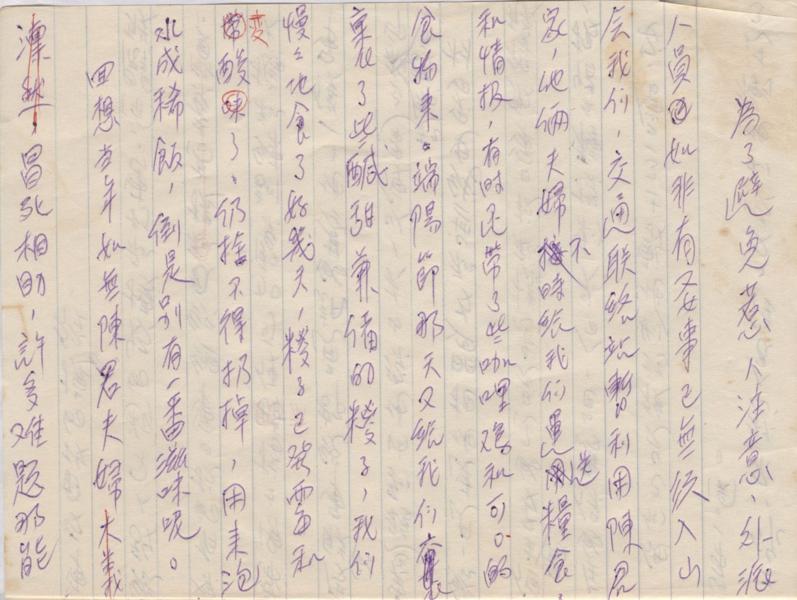 為了避免惹人注意，外派
人員如非有必要事已無須入山
会我们，交通联络站暫利用陳君
家，他倆夫婦不時给我们運送糧食
和情报，有时还带了些咖哩鸡和可口的
食物来。端陽節那天又给我们
了些鹹甜兼備的糉子，我们
慢々地食了好幾天，糉子已發霉和
变酸了。仍捨不得扔掉，用来泡
水成稀飯，倒是别有一番滋味呢。
回想当年如無陳君夫婦大義
凜然，冒死相助，許多难題那能